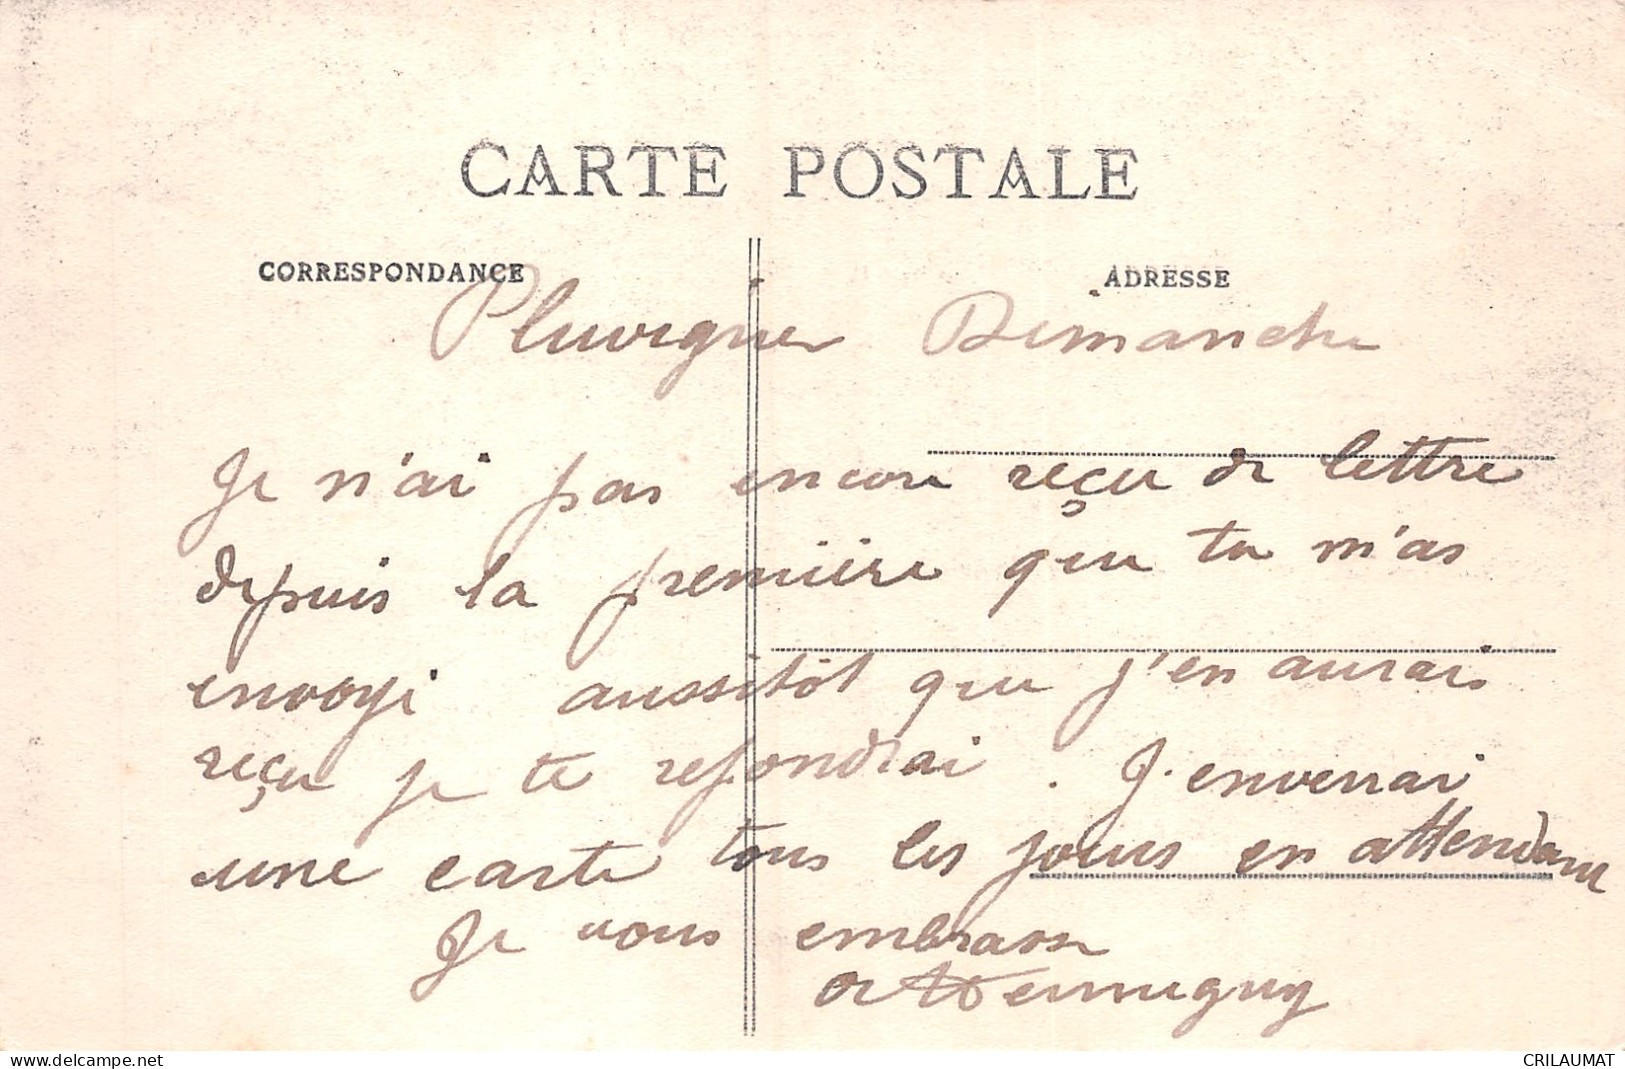 CARTE POSTALE
CORRESPONDANCE
ADRESSE
Pluvigner Dimanche
Je n'ai pas encore reçu de lettre
depuis la première que tu m'as
envoyé aussitôt que j'en aurais
reçu je te repondrai. J. enverrai
une carte tous les jours en attendant
Je vous embrasse
delcampe.net
CRILAUMAT